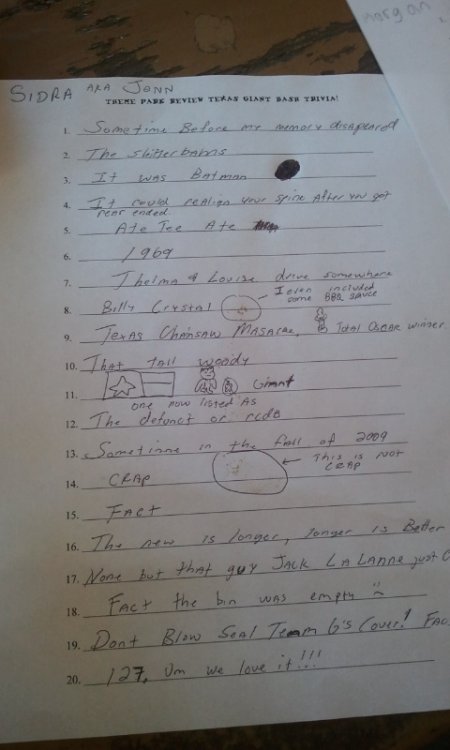 Morgan
SIDRA AKA JOHN
THEME PARK REVIEW TEXAS GIANT BASH TRIVIA!
1. Sometime Before my memory disapeared
2. The
3. It was Batman
4. It could realign your spine After you got
rear ended.
5. Ate Tee Ate
6. 1969
7. Thelma & Louise drive somewhere
8. Billy Crystal I even included
some BBQ sauce
9. Texas Chainsaw Masacrae, Total Oscar winner
10. That tall woody
11. Giant
12. The defunct or one now listed As
rcdb
13. Sometime in the fall of 2009
14. CRAP This is NOT
CRAP
15. FACT
16. The new is longer, longer is Better
17. None but that guy JACK LA LANNE just
18. FACT the bin was empty
19. Dont Blow Seal Team 6's Cover!
20. 127, Um we love it!!!